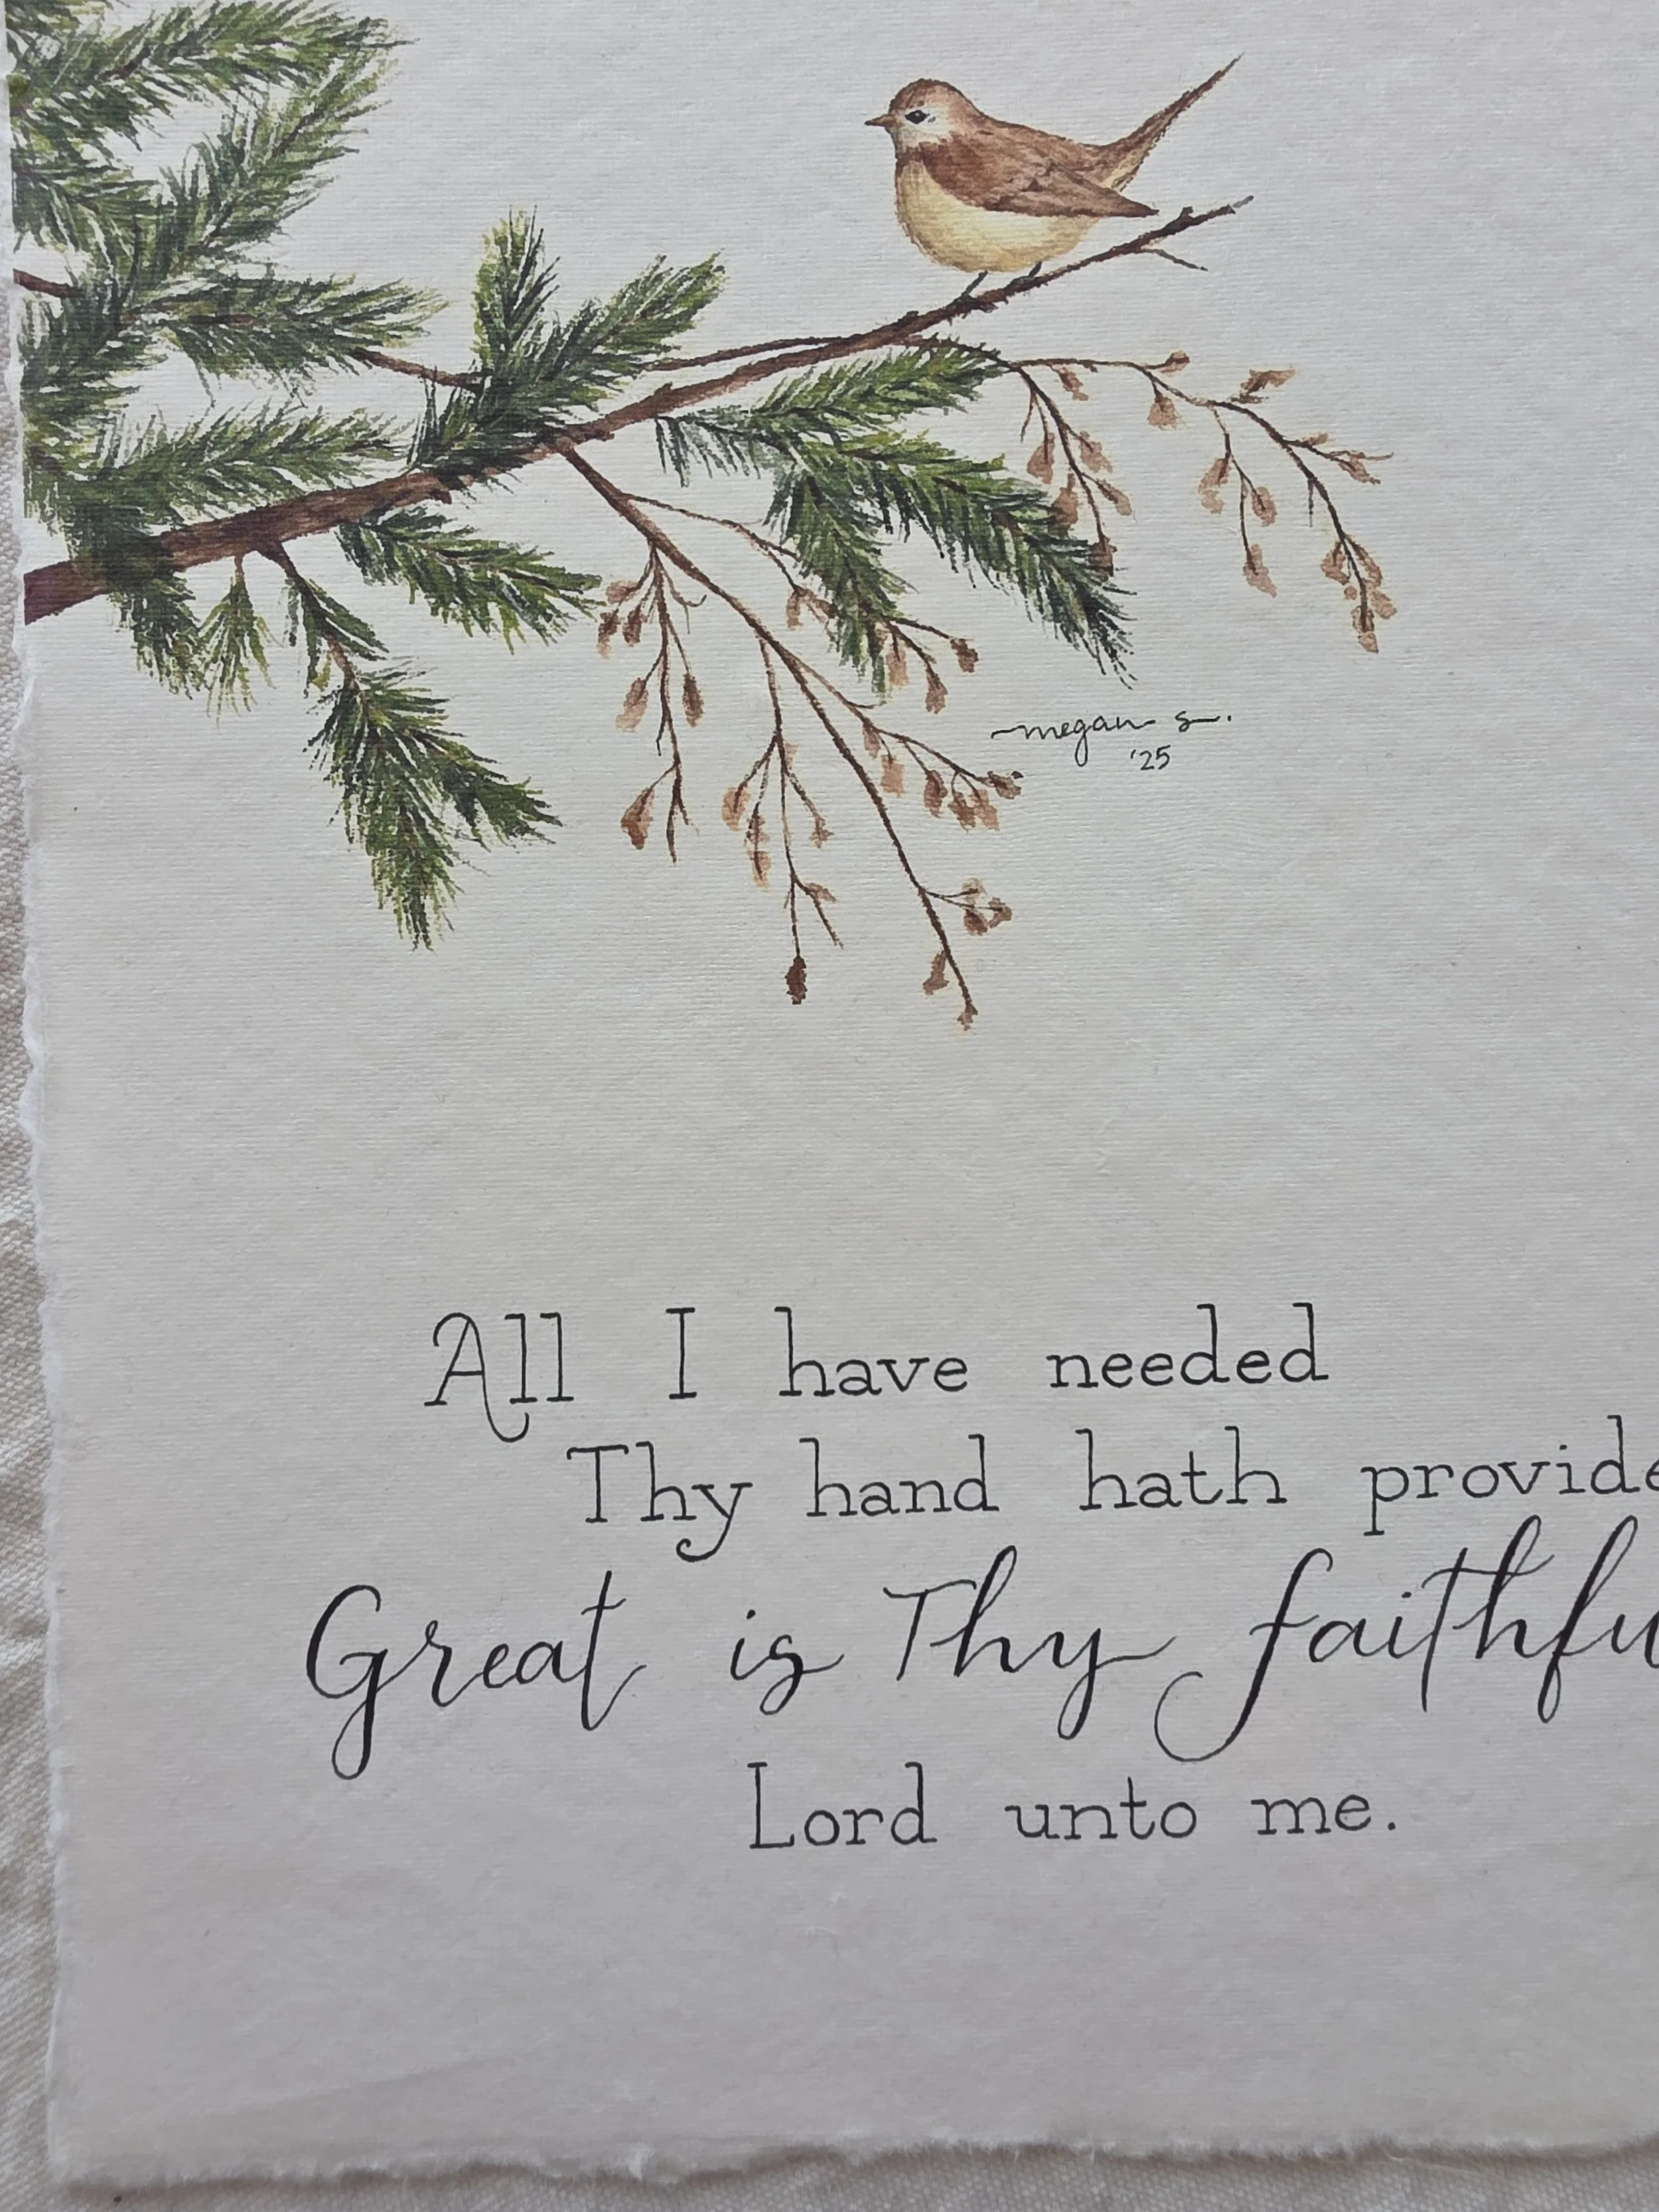 megan s.
'25
All I have needed
Thy hand hath provide
Great is Thy faithfu
Lord unto me.